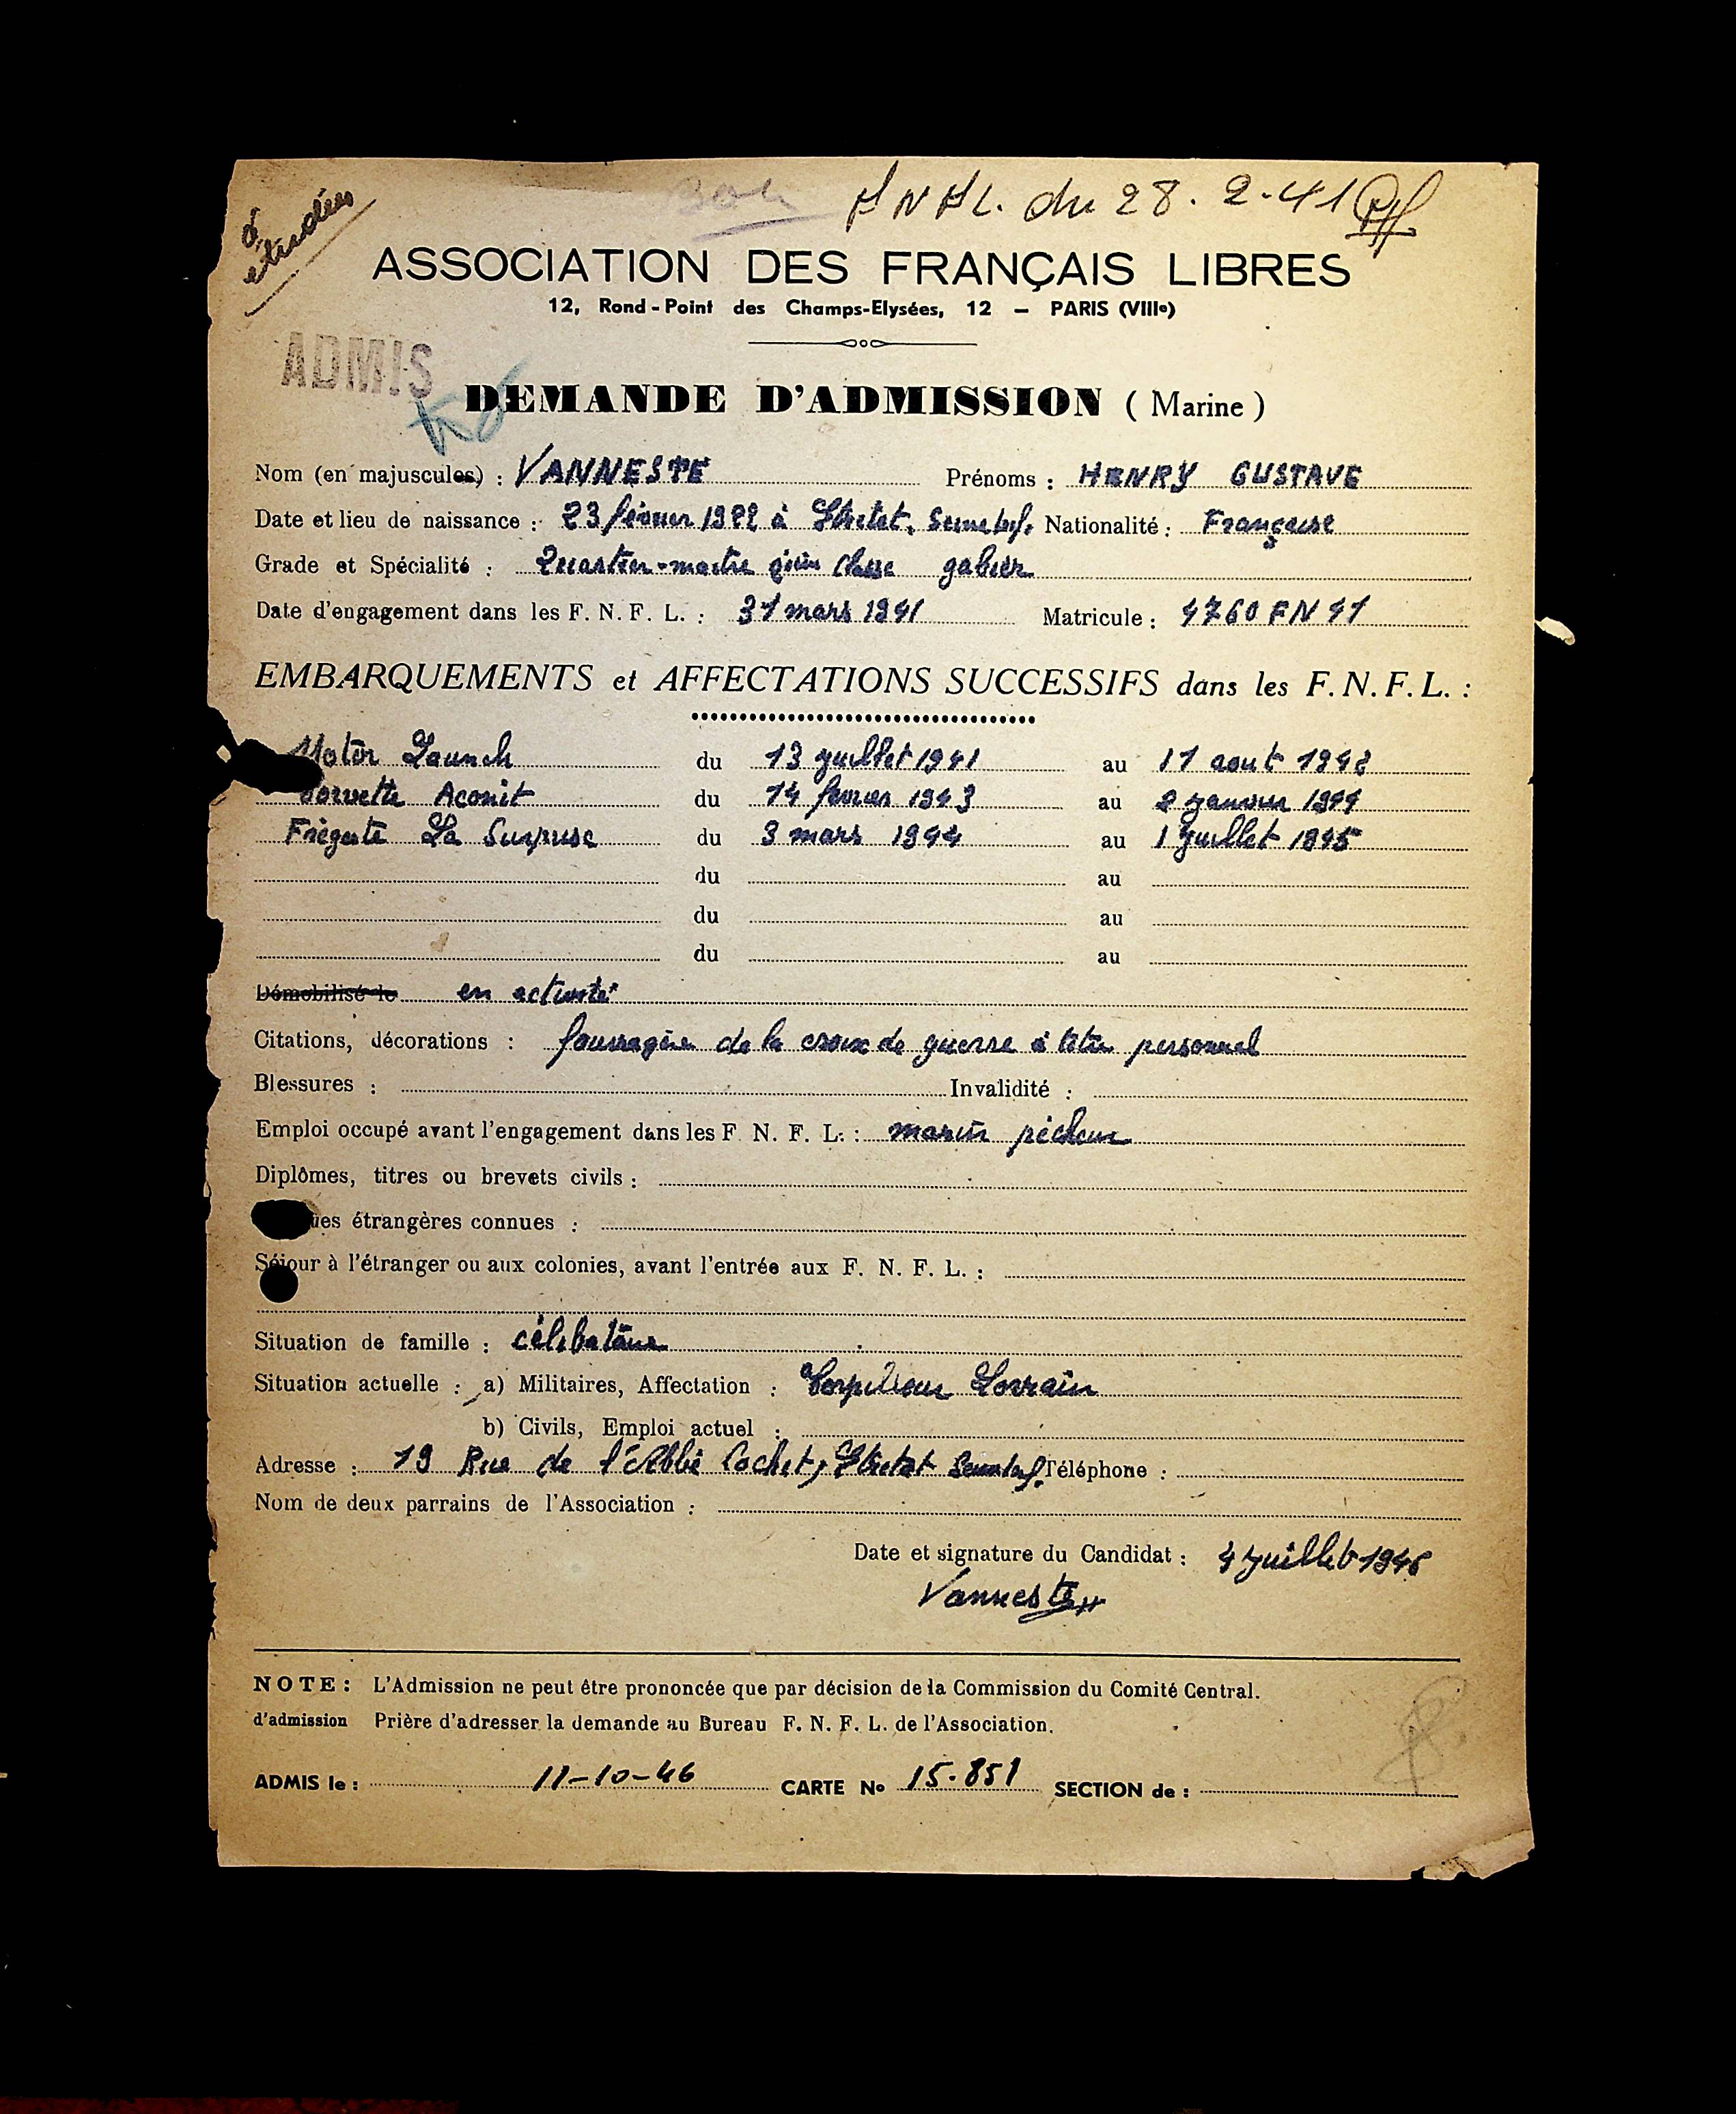 à
étudier
F N F L. du 28. 2-41
ASSOCIATION DES FRANÇAIS LIBRES
12, Rond-Point des Champs-Elysées, 12 — PARIS (VIIIe)
ADMIS
DEMANDE D'ADMISSION ( Marine )
Nom (en majuscules) : VANNESTE Prénoms : HENRY GUSTAVE
Date et lieu de naissance : 23 février 1922 à Etretat, Seine Inf. Nationalité : Française
Grade et Spécialité : Quartier-maitre classe gabier
Date d'engagement dans les F. N. F. L. : 31 mars 1941 Matricule : 4760 FN 41
EMBARQUEMENTS et AFFECTATIONS SUCCESSIFS dans les F. N. F. L. :
Motor Launch du 13 juillet 1941 au 11 aout 1942
Corvette Aconit du 14 fevrier 1943 au 2 janvier 1944
Frégate La Surprise du 3 mars 1944 au 1 juillet 1945
du au
du au
du au
Démobilisé le en activité
Citations, décorations : fourragère de la croix de guerre à titre personnel
Blessures : Invalidité :
Emploi occupé avant l'engagement dans les F. N. F. L. : marin pécheur
Diplômes, titres ou brevets civils :
ues étrangères connues :
Séjour à l'étranger ou aux colonies, avant l'entrée aux F. N. F. L. :
Situation de famille : célibataire
Situation actuelle : a) Militaires, Affectation : Torpilleur Lorrain
b) Civils, Emploi actuel :
Adresse : 19 Rue de l'Abbé Cochet, Etretat Seine Inf. Téléphone :
Nom de deux parrains de l'Association :
Date et signature du Candidat : 4 juillet 1946
Vanneste
NOTE : L'Admission ne peut être prononcée que par décision de la Commission du Comité Central.
d'admission Prière d'adresser la demande au Bureau F. N. F. L. de l'Association.
ADMIS le : 11-10-46 CARTE No 15.851 SECTION de :